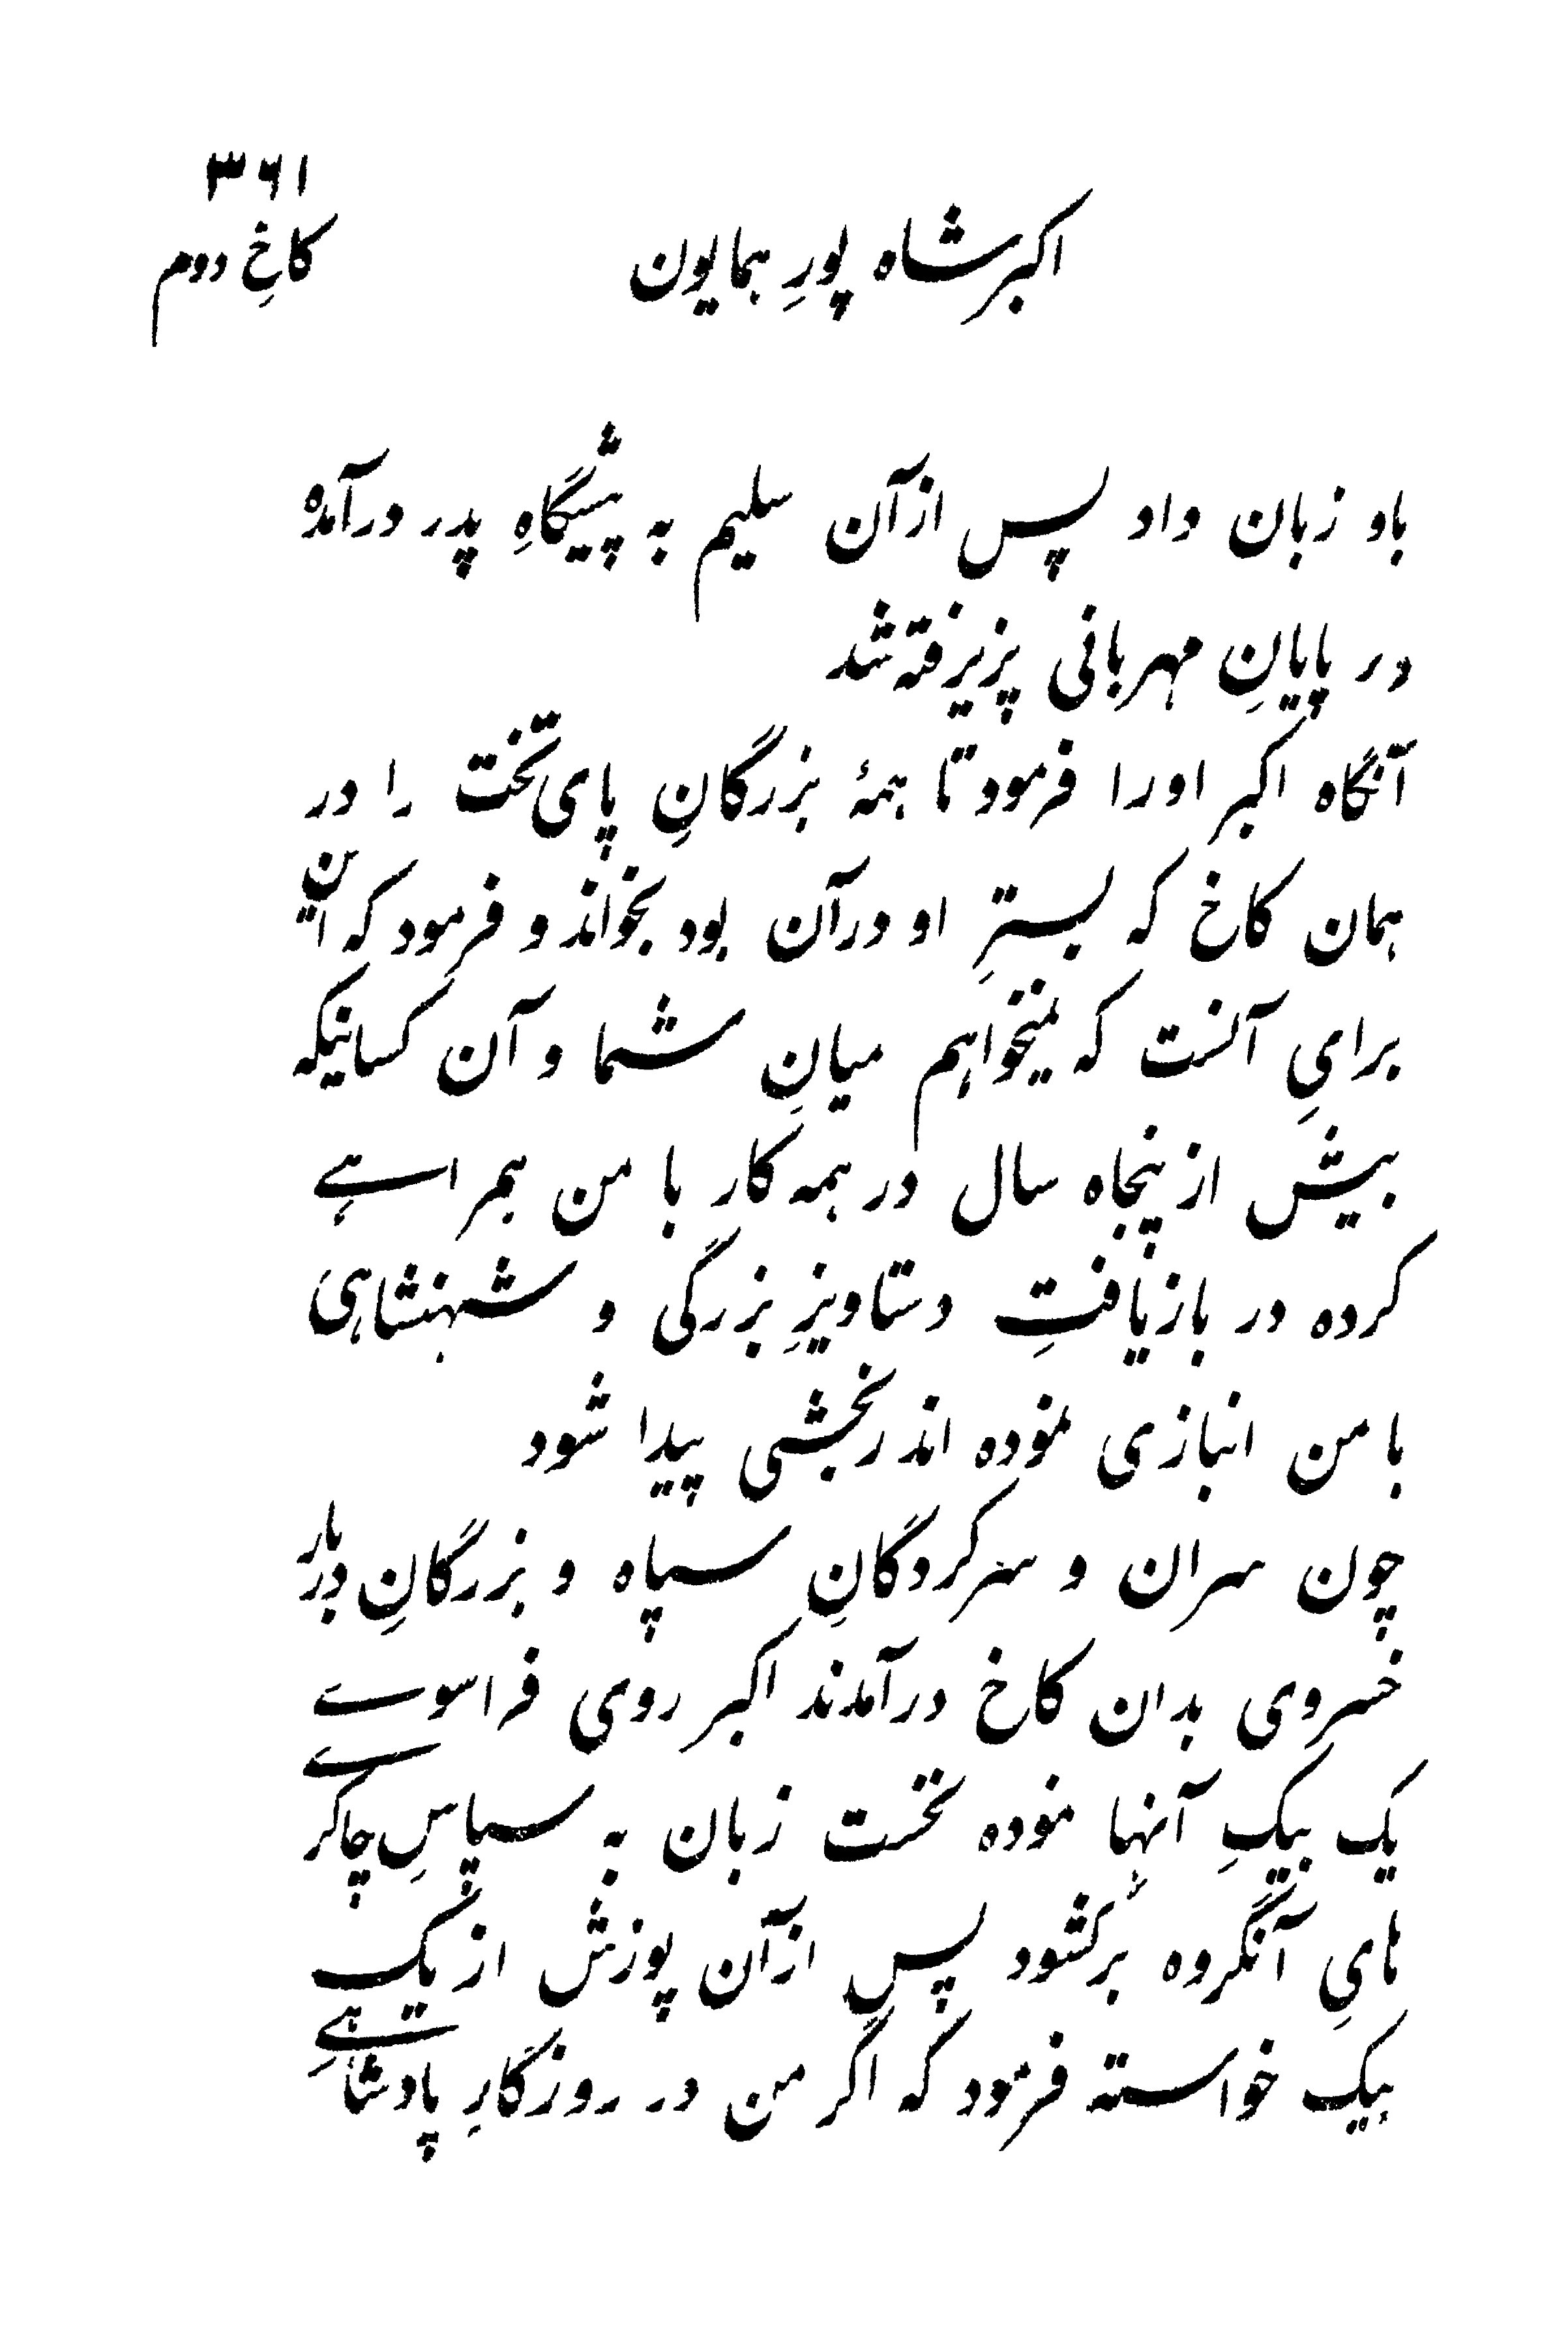 ۳۶۱
اکبرشاه پورِ همایون
کاخِ دوم
باو زبان داد پس ازآن سلیم به پیشگاهِ پدر درآمده
در پایانِ مهربانی پزیرفته شد
آنگاه اکبر اورا فرمود تا همۀ بزرگانِ پای تخت را در
همان کاخ که بسترِ او درآن بود بخواند و فرمود که این
برایِ آنست که نمیخواهم میانِ شما و آن کسانیکه
بیش از پنجاه سال در همه کار با من همراهے
کرده در بازیافتِ دستاویزِ بزرگی و شهنشاهی
با من انبازی نموده اند رنجشی پیدا شود
چون سران و سرکردگانِ سپاه و بزرگانِ دربار
خسروی بدان کاخ درآمدند اکبر روی فراسوے
یک بیکِ آنها نموده نخست زبان به سپاسِ چاکرے
هایِ آنگروه برکشود پس ازآن پوزش از یک
بیک خواسته فرمود که اگر من در روزگارِ پادشاهےِ